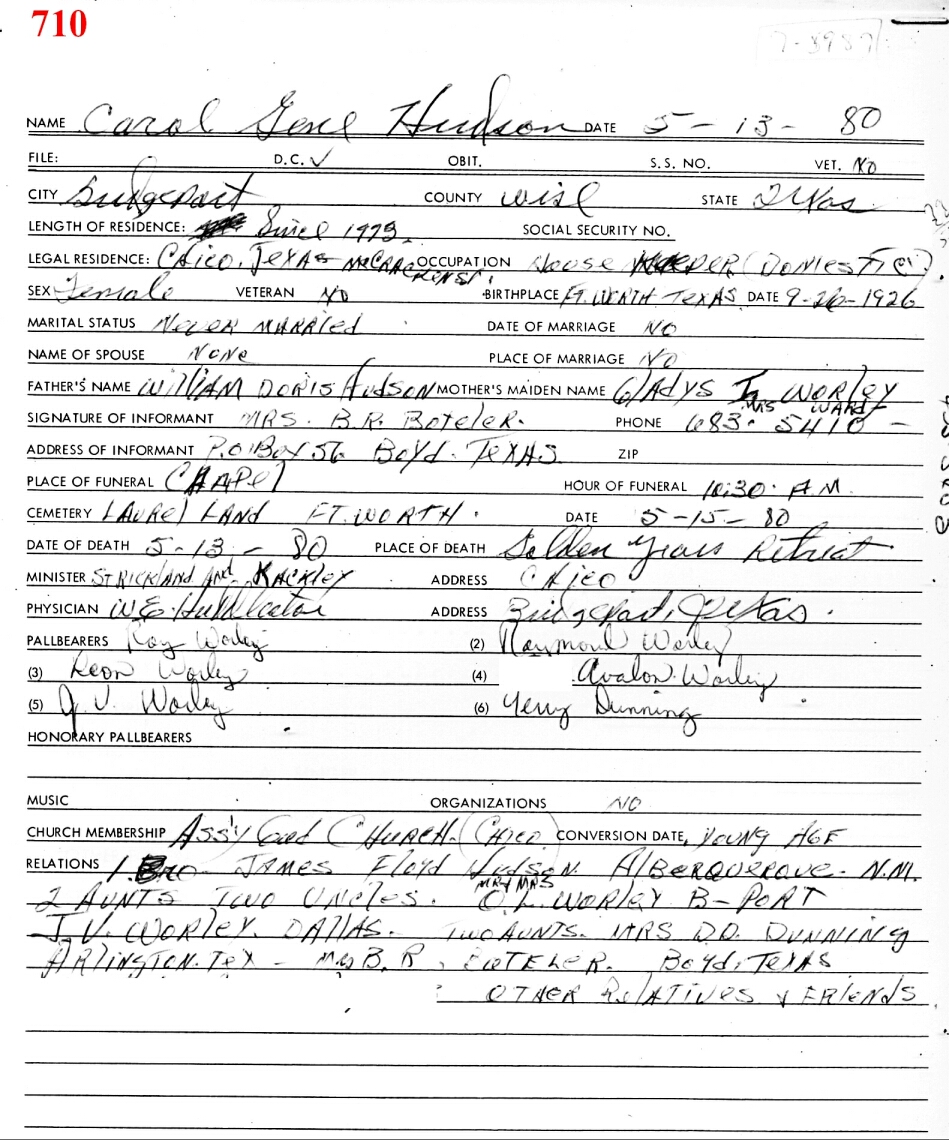 710
NAME Carol Gene Hudson DATE 5-13-80
FILE: D.C. ✓ OBIT. S.S. NO. VET. No
CITY Bridgeport COUNTY Wise STATE Texas
LENGTH OF RESIDENCE: Since 1973. SOCIAL SECURITY NO.
LEGAL RESIDENCE: CHICO, TEXAS OCCUPATION House KEEPER (DOMESTIC)
SEX Female VETERAN NO BIRTHPLACE FT WORTH TEXAS DATE 9-26-1926
MARITAL STATUS Never MARRIED DATE OF MARRIAGE NO
NAME OF SPOUSE None PLACE OF MARRIAGE NO
FATHER'S NAME WILLIAM DORIS HUDSON MOTHER'S MAIDEN NAME GLADYS I. WORLEY
MRS WARD
SIGNATURE OF INFORMANT MRS. B.R. BOTELER. PHONE 683-5410
ADDRESS OF INFORMANT P.O. BOX 56 BOYD. TEXAS ZIP
PLACE OF FUNERAL CHAPEL HOUR OF FUNERAL 10:30 A.M.
CEMETERY LAUREL LAND FT. WORTH. DATE 5-15-80
DATE OF DEATH 5-13-80 PLACE OF DEATH Golden Years Retreat
MINISTER STRICKLAND And KACKLEY ADDRESS CHICO
PHYSICIAN W.E. ADDRESS Bridgeport, Texas.
PALLBEARERS Roy Worley (2) Raymond Worley
(3) Leon Worley (4) Avalon Worley
(5) J.V. Worley (6) Jerry Dunning
HONORARY PALLBEARERS
MUSIC ORGANIZATIONS NO
CHURCH MEMBERSHIP ASS'Y God CHURCH (CHICO) CONVERSION DATE, YOUNG AGE
RELATIONS 1 Bro JAMES FLOYD HUDSON. ALBERQUERQUE. N.M.
2 AUNTS TWO UNCLES. MR & MRS O.L. WORLEY B-PORT
J.V. WORLEY. DALLAS. TWO AUNTS. MRS D.D. DUNNING
ARLINGTON. TEX - MRS B.R. BOTELER. BOYD, TEXAS
OTHER RELATIVES & FRIENDS